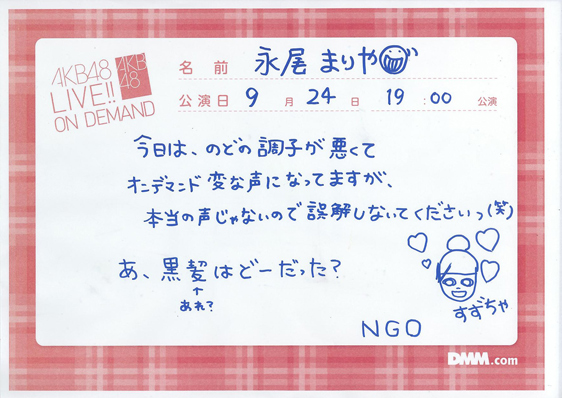 AKB48
LIVE!!
ON DEMAND
AKB
48
名前 永尾まりや
公演日 9月24日 19:00 公演
今日は、のどの調子が悪くて
オンデマンド変な声になってますが、
本当の声じゃないので誤解しないでくださいっ(笑)
あ、黒髪はどーだった?
↑
あれ?
すずちゃ
NGO
DMM.com